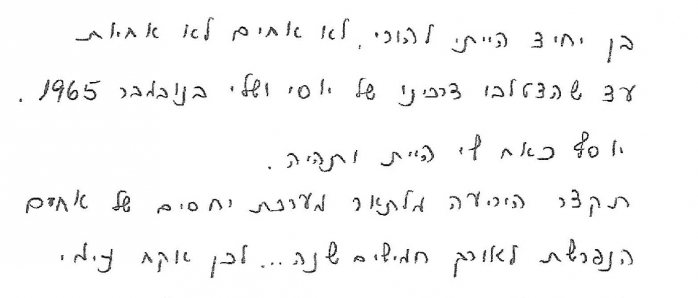 בן יחיד הייתי להורי, לא אחים לא אחיות
עד שהצטלבו דרכינו של יוסי ושלי בנובמבר 1965.
יוסף כאח לי היית ותהיה.
תקצר היריעה מלתאר מערכת יחסים של אחים
הנפרשת לאורך חמישים שנה... לכן אקח צילמי